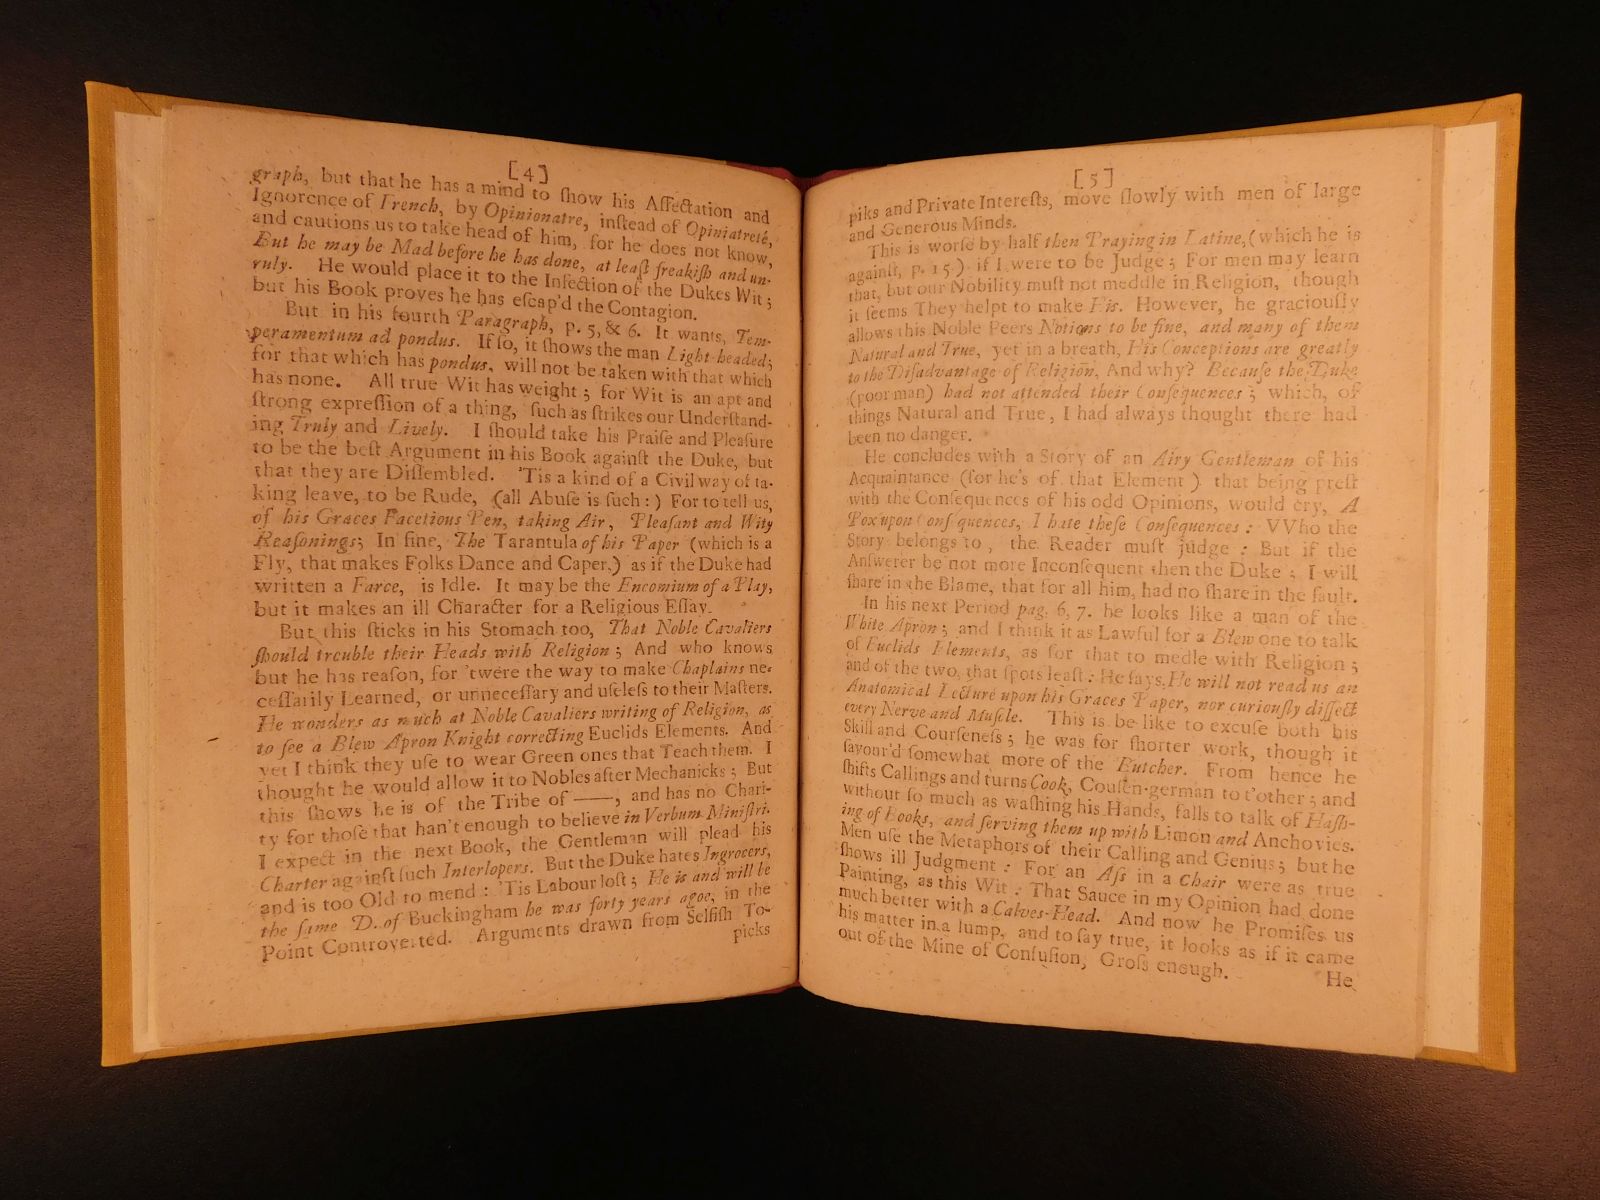 [4]
graph, but that he has a mind to ſhow his Affectation and
Ignorence of French, by Opinionatre, inſtead of Opiniatreté,
and cautions us to take head of him, for he does not know,
But he may be Mad before he has done, at leaſt freakiſh and un-
ruly. He would place it to the Infection of the Dukes Wit;
but his Book proves he has eſcap'd the Contagion.
But in his fourth Paragraph, p. 5, & 6. It wants, Tem-
peramentum ad pondus. If ſo, it ſhows the man Light-headed;
for that which has pondus, will not be taken with that which
has none. All true Wit has weight; for Wit is an apt and
ſtrong expreſſion of a thing, ſuch as ſtrikes our Underſtand-
ing Truly and Lively. I ſhould take his Praiſe and Pleaſure
to be the beſt Argument in his Book againſt the Duke, but
that they are Diſſembled. 'Tis a kind of a Civil way of ta-
king leave, to be Rude, (all Abuſe is ſuch:) For to tell us,
of his Graces Facetious Pen, taking Air, Pleaſant and Wity
Reaſonings; In fine, The Tarantula of his Paper (which is a
Fly, that makes Folks Dance and Caper,) as if the Duke had
written a Farce, is Idle. It may be the Encomium of a Play,
but it makes an ill Character for a Religious Eſſay.
But this ſticks in his Stomach too, That Noble Cavaliers
ſhould trouble their Heads with Religion; And who knows
but he has reaſon, for 'twere the way to make Chaplains ne-
ceſſarily Learned, or unneceſſary and uſeleſs to their Maſters.
He wonders as much at Noble Cavaliers writing of Religion, as
to ſee a Blew Apron Knight correcting Euclids Elements. And
yet I think they uſe to wear Green ones that Teach them. I
thought he would allow it to Nobles after Mechanicks; But
this ſhows he is of the Tribe of ——, and has no Chari-
ty for thoſe that han't enough to believe in Verbum Miniſtri.
I expect in the next Book, the Gentleman will plead his
Charter againſt ſuch Interlopers. But the Duke hates Ingrocers,
and is too Old to mend: 'Tis Labour loſt; He is and will be
the ſame D. of Buckingham he was forty years agoe, in the
Point Controverted. Arguments drawn from Selfiſh To-
picks
[5]
piks and Private Intereſts, move ſlowly with men of large
and Generous Minds.
This is worſe by half then Praying in Latine, (which he is
againſt, p. 15.) if I were to be Judge; For men may learn
that, but our Nobility muſt not meddle in Religion, though
it ſeems They helpt to make His. However, he graciouſly
allows this Noble Peers Notions to be fine, and many of them
Natural and True, yet in a breath, His Conceptions are greatly
to the Diſadvantage of Religion, And why? Becauſe the Duke
(poor man) had not attended their Conſequences; which, of
things Natural and True, I had always thought there had
been no danger.
He concludes with a Story of an Airy Gentleman of his
Acquaintance (for he's of that Element) that being preſt
with the Conſequences of his odd Opinions, would cry, A
Pox upon Conſequences, I hate theſe Conſequences: VVho the
Story belongs to, the Reader muſt judge: But if the
Anſwerer be not more Inconſequent then the Duke; I will
ſhare in the Blame, that for all him, had no ſhare in the fault.
In his next Period pag. 6, 7. he looks like a man of the
White Apron; and I think it as Lawful for a Blew one to talk
of Euclids Elements, as for that to medle with Religion;
and of the two, that ſpots leaſt: He ſays, He will not read us an
Anatomical Lecture upon his Graces Paper, nor curiouſly diſſect
every Nerve and Muſcle. This is be like to excuſe both his
Skill and Courſeneſs; he was for ſhorter work, though it
ſavour'd ſomewhat more of the Butcher. From hence he
ſhifts Callings and turns Cook, Couſen-german to t'other; and
without ſo much as waſhing his Hands, falls to talk of Haſh-
ing of Books, and ſerving them up with Limon and Anchovies.
Men uſe the Metaphors of their Calling and Genius; but he
ſhows ill Judgment: For an Aſs in a Chair were as true
Painting, as this Wit: That Sauce in my Opinion had done
much better with a Calves-Head. And now he Promiſes us
his matter in a lump, and to ſay true, it looks as if it came
out of the Mine of Confuſion, Groſs enough.
He